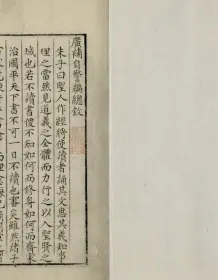 廣鋪自警編總敘
朱子曰聖人作經將使讀者誦其文思其義知事
理之當然見道義之全體而力行之以入聖賢之
域也若不讀書便不知如何而修身如何而齊家
治國平天下書不可一日不讀也審矣雖然諸子